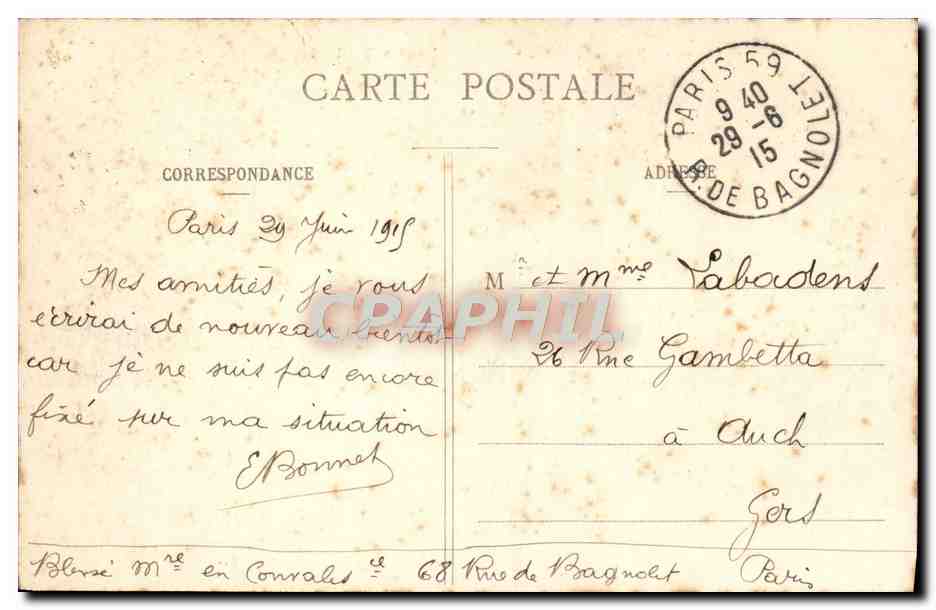 CARTE POSTALE
PARIS 59
9 40
29 -6
15
R. DE BAGNOLET
CORRESPONDANCE
ADRESSE
Paris 29 Juin 1915
Mes amitiés, je vous
écrirai de nouveau bientot
car je ne suis pas encore
fixé sur ma situation
EBonnet
Mr et Mme Labadens
26 Rue Gambetta
à Auch
Gers
Blessé Mre en Convalesce 68 Rue de Bagnolet Paris
CPAPHIL